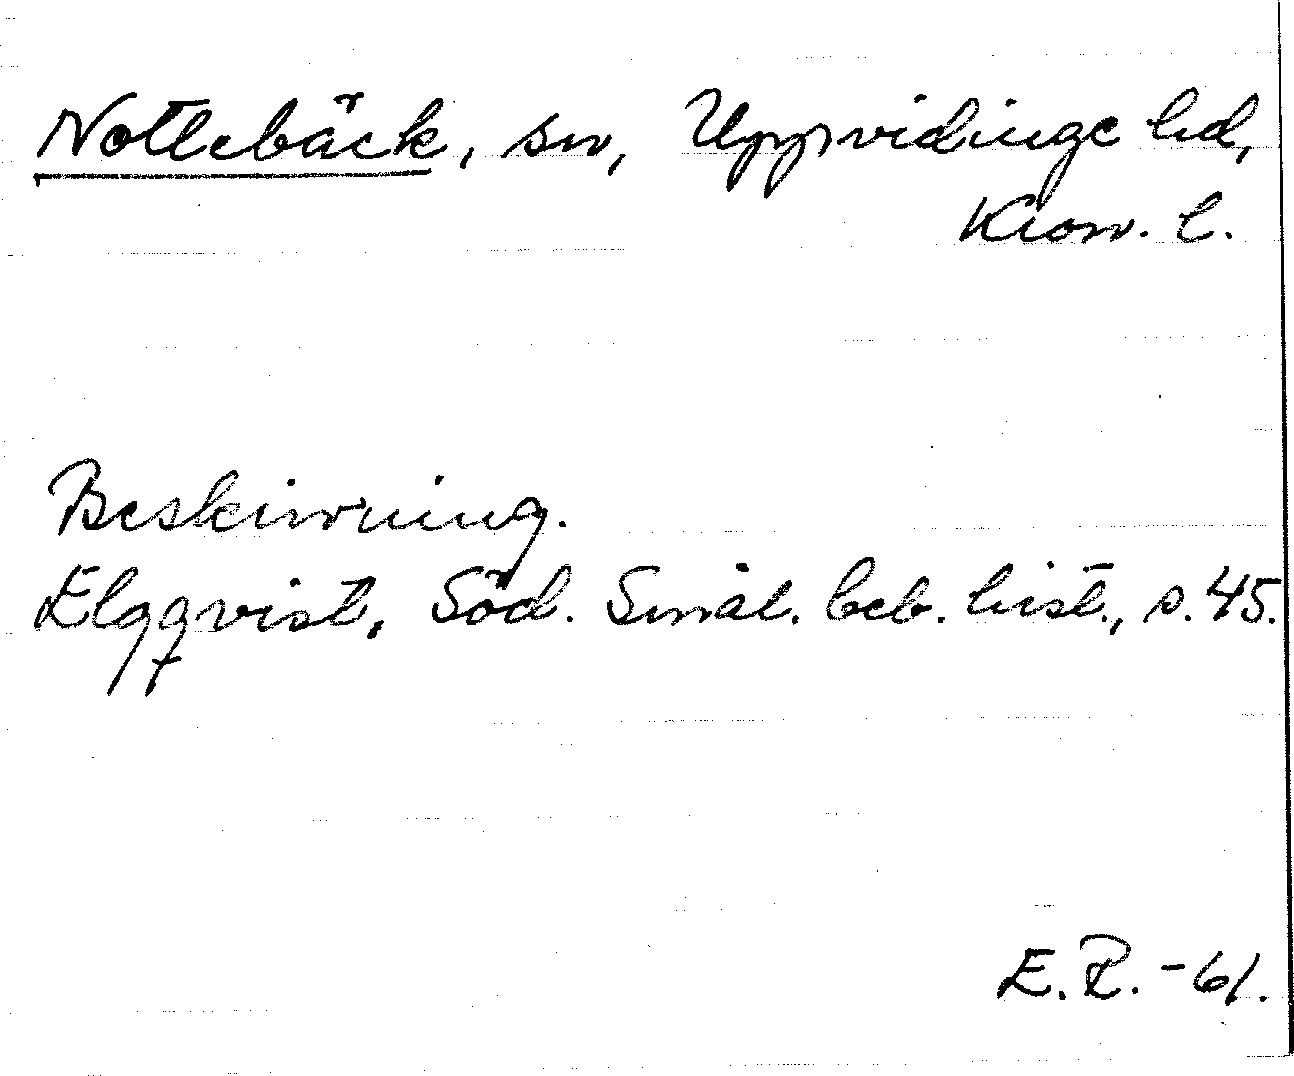 Nottebäck, sn, Uppvidinge hd,
Kron. l.
Beskrivning.
Elgqvist, Söd. Smål. beb. hist., s. 45.
E. R. -61.